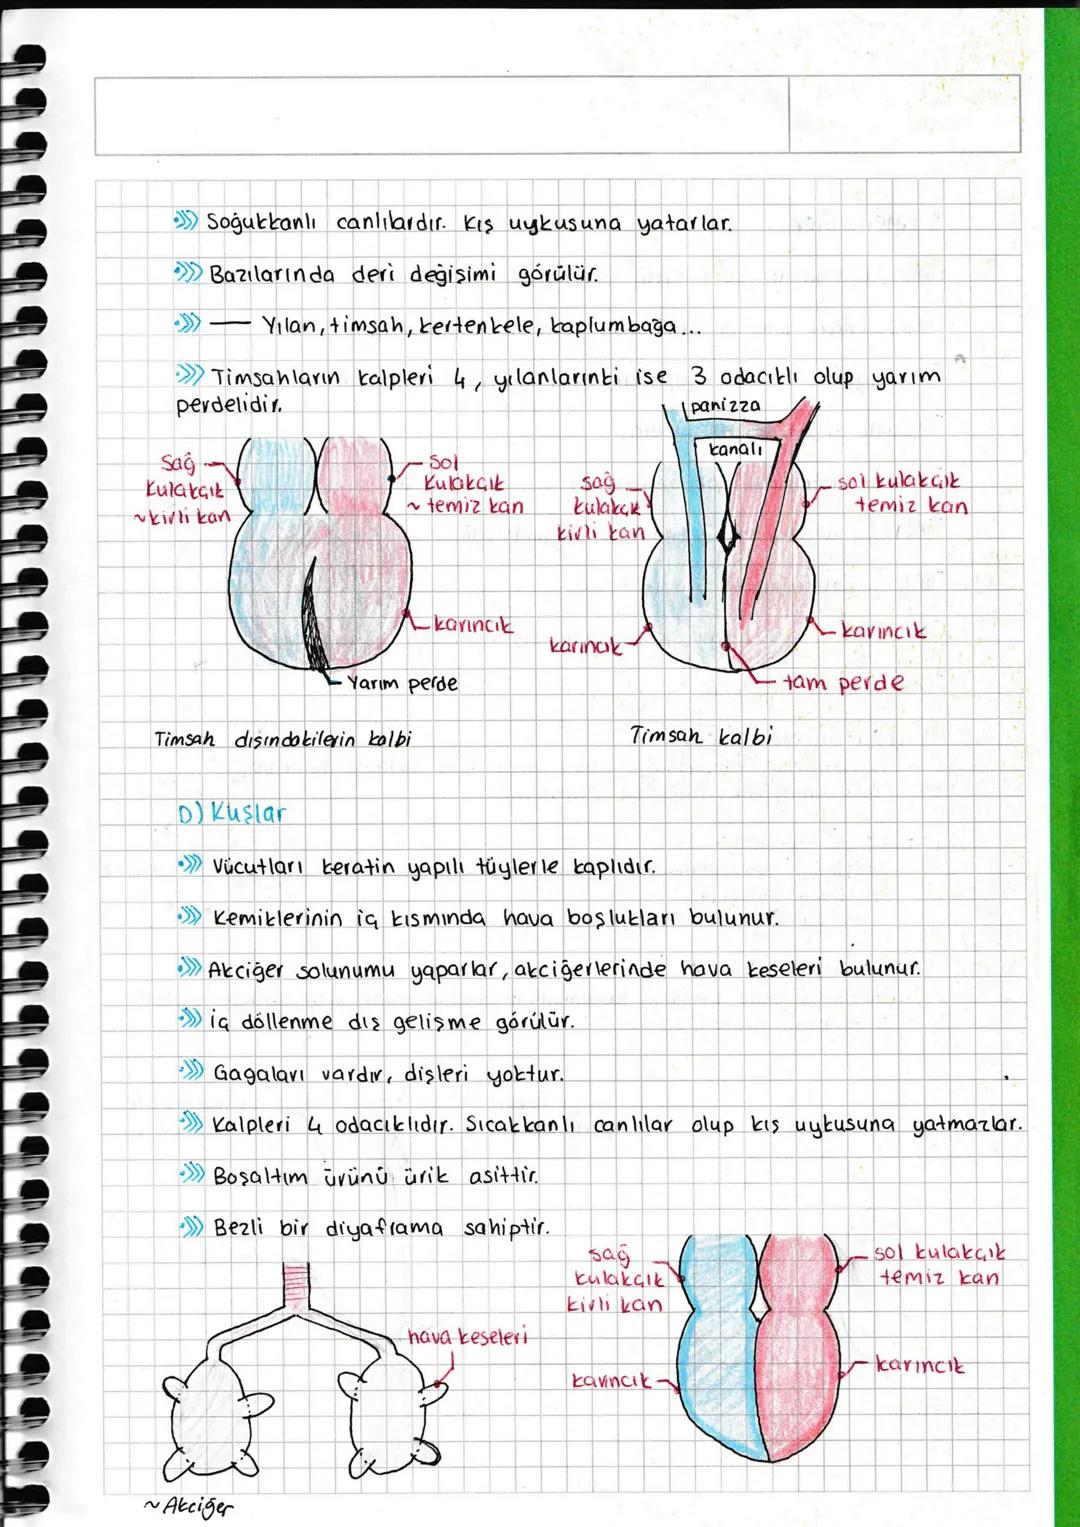 Soğukkanlı canlılardır. Kış uykusuna yatarlar.
Bazılarında deri değişimi görülür.
— Yılan, timsah, kertenkele, kaplumbağa...
Timsahların kalpleri 4, yılanlarınki ise 3 odacıklı olup yarım
perdelidir.
panizza
kanalı
Sağ
kulakçık
~kirli kan
Sol
kulakçık
~ temiz kan
karıncık
Yarım perde
Timsah dışındakilerin kalbi
sağ
kulakçık
kirli kan
sol kulakçık
temiz kan
karıncık
karıncık
tam perde
Timsah kalbi
D) Kuşlar
Vücutları keratin yapılı tüylerle kaplıdır.
Kemiklerinin iç kısmında hava boşlukları bulunur.
Akciğer solunumu yaparlar, akciğerlerinde hava keseleri bulunur.
iç döllenme dış gelişme görülür.
Gagaları vardır, dişleri yoktur.
Kalpleri 4 odacıklıdır. Sıcakkanlı canlılar olup kış uykusuna yatmazlar.
Boşaltım ürünü ürik asittir.
Bezli bir diyaframa sahiptir.
hava keseleri
~ Akciğer
sağ
kulakçık
kirli kan
sol kulakçık
temiz kan
karıncık
karıncık